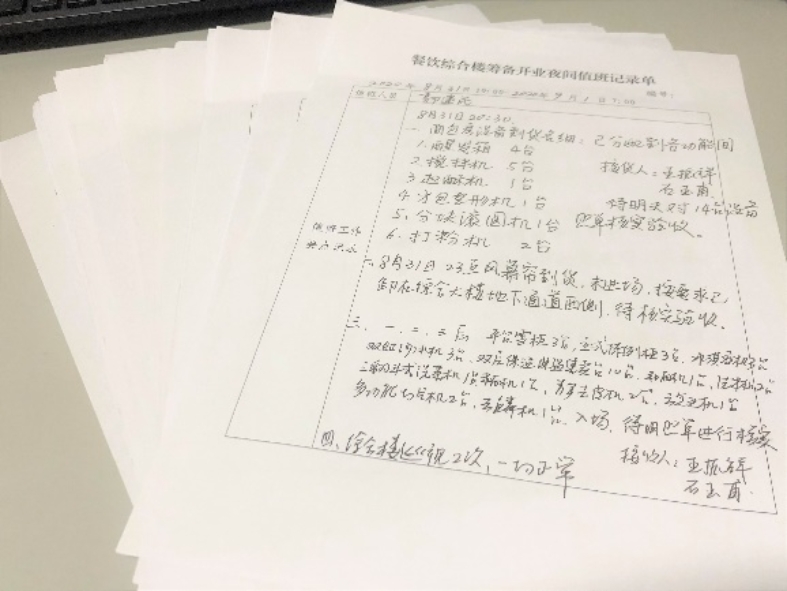 餐饮综合楼筹备开业夜间值班记录单
2020年8月31日 2020年9月1日7:00 编号:
值班人员
8月31日20:30.
一、面包房设备到货名细:已分配到各功能间
1.醒发箱 4台
2.搅拌机 5台 接货人:王振祥
3.起酥机 1台 石玉甫
4.方包整形机1台 待明天对14台设备
5.分块滚圆机1台 照单核实验收。
6.打粉机 2台
值班工作
二、8月31日23点风幕帘到货,未进场,按要求已
卸在综合大楼地下通道西侧,待核实验收。
三、一、二、三层 平台雪柜3台,立式陈列柜3台,冰淇淋机
双缸 机3台,双层保温 10台,和面机1台,
洗 机1台 机1台,去皮机2台, 机1台
多功能切片机2台,去鳞机1台,入场,待明照单进行核实
接收人:王振祥
石玉甫
四、综合楼巡视2次,一切正常